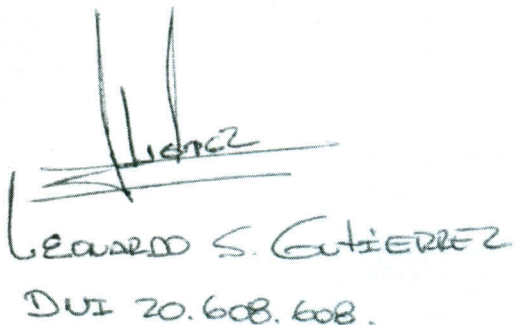 LEONARDO S. GUTIERREZ
DNI 20.608.608.